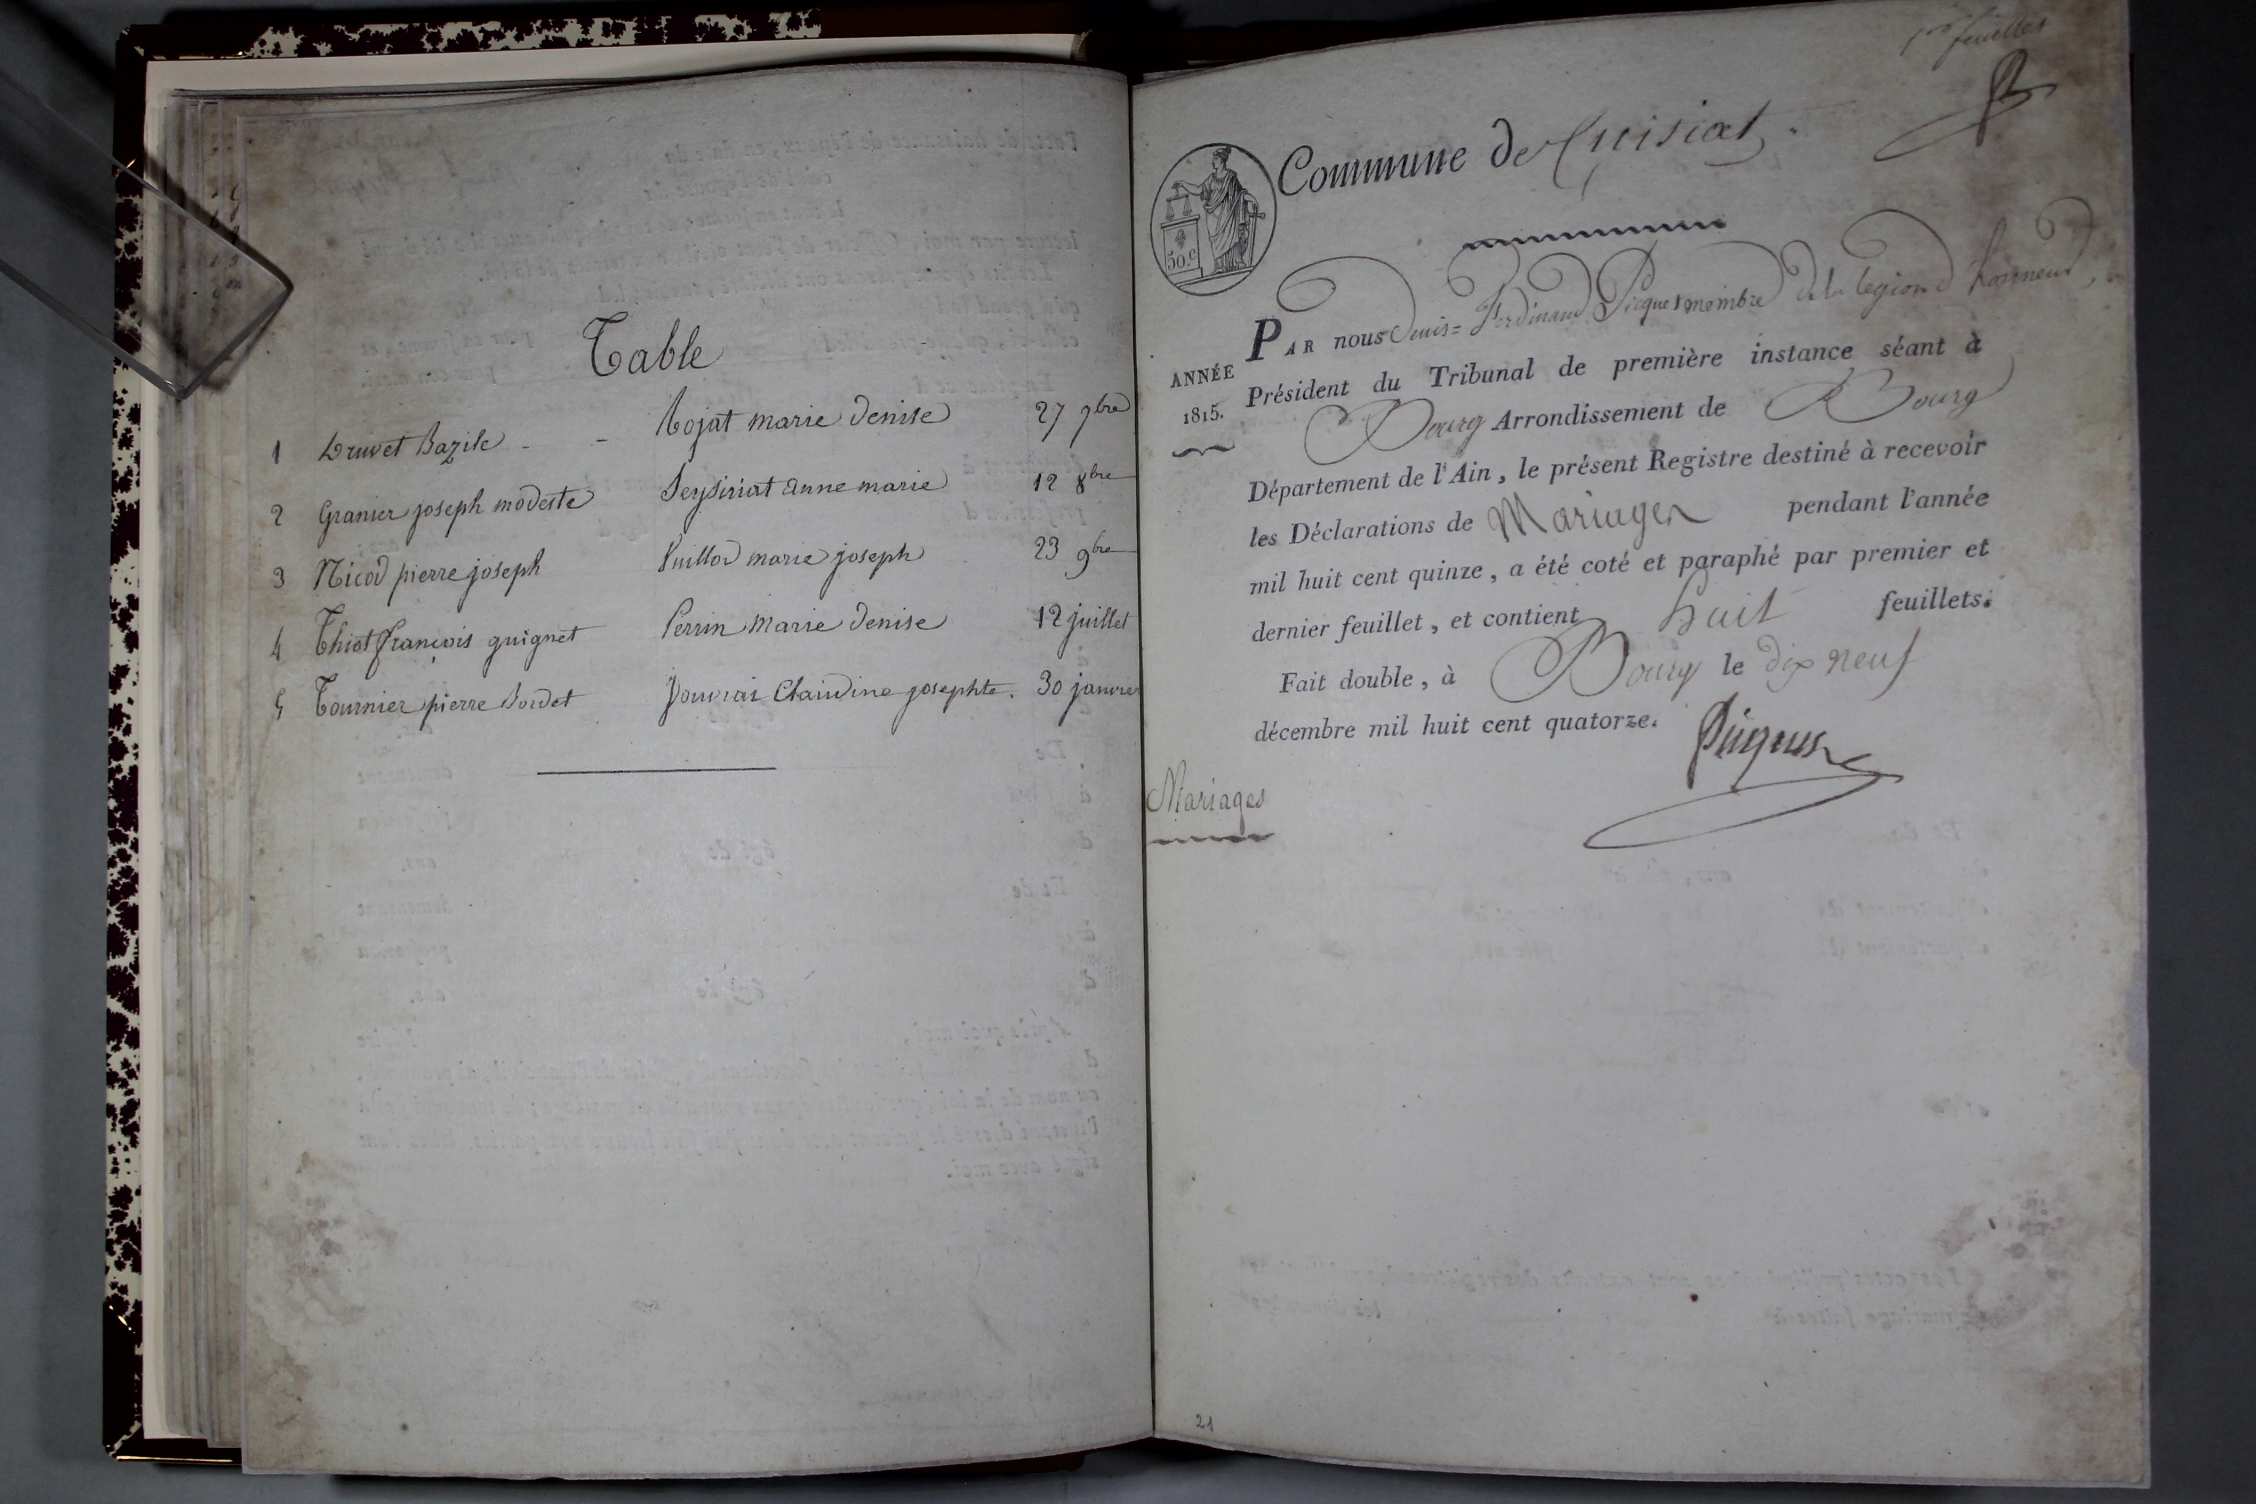 Table
1 Druvet Bazile - - Tojat marie denise 27 9bre
2 Granier joseph modeste Seysiriat anne marie 12 8bre
3 Nicod pierre joseph Vuillod marie joseph 23 9bre
4 Thiot françois guignet Perrin Marie denise 12 juillet
5 Tournier pierre Boidet Claudine josephte. 30 janvier
1er feuillet
Commune de Cuisiat.
50.c
PAR nous Denis=Ferdinand Picquet membre de la legion d'honneur,
ANNÉE
1815.
Président du Tribunal de première instance séant à
Bourg Arrondissement de Bourg
Département de l'Ain, le présent Registre destiné à recevoir
les Déclarations de Mariages pendant l'année
mil huit cent quinze, a été coté et paraphé par premier et
dernier feuillet, et contient huit feuillets.
Fait double, à Bourg le dix neuf
décembre mil huit cent quatorze.
Picquet
Mariages
21